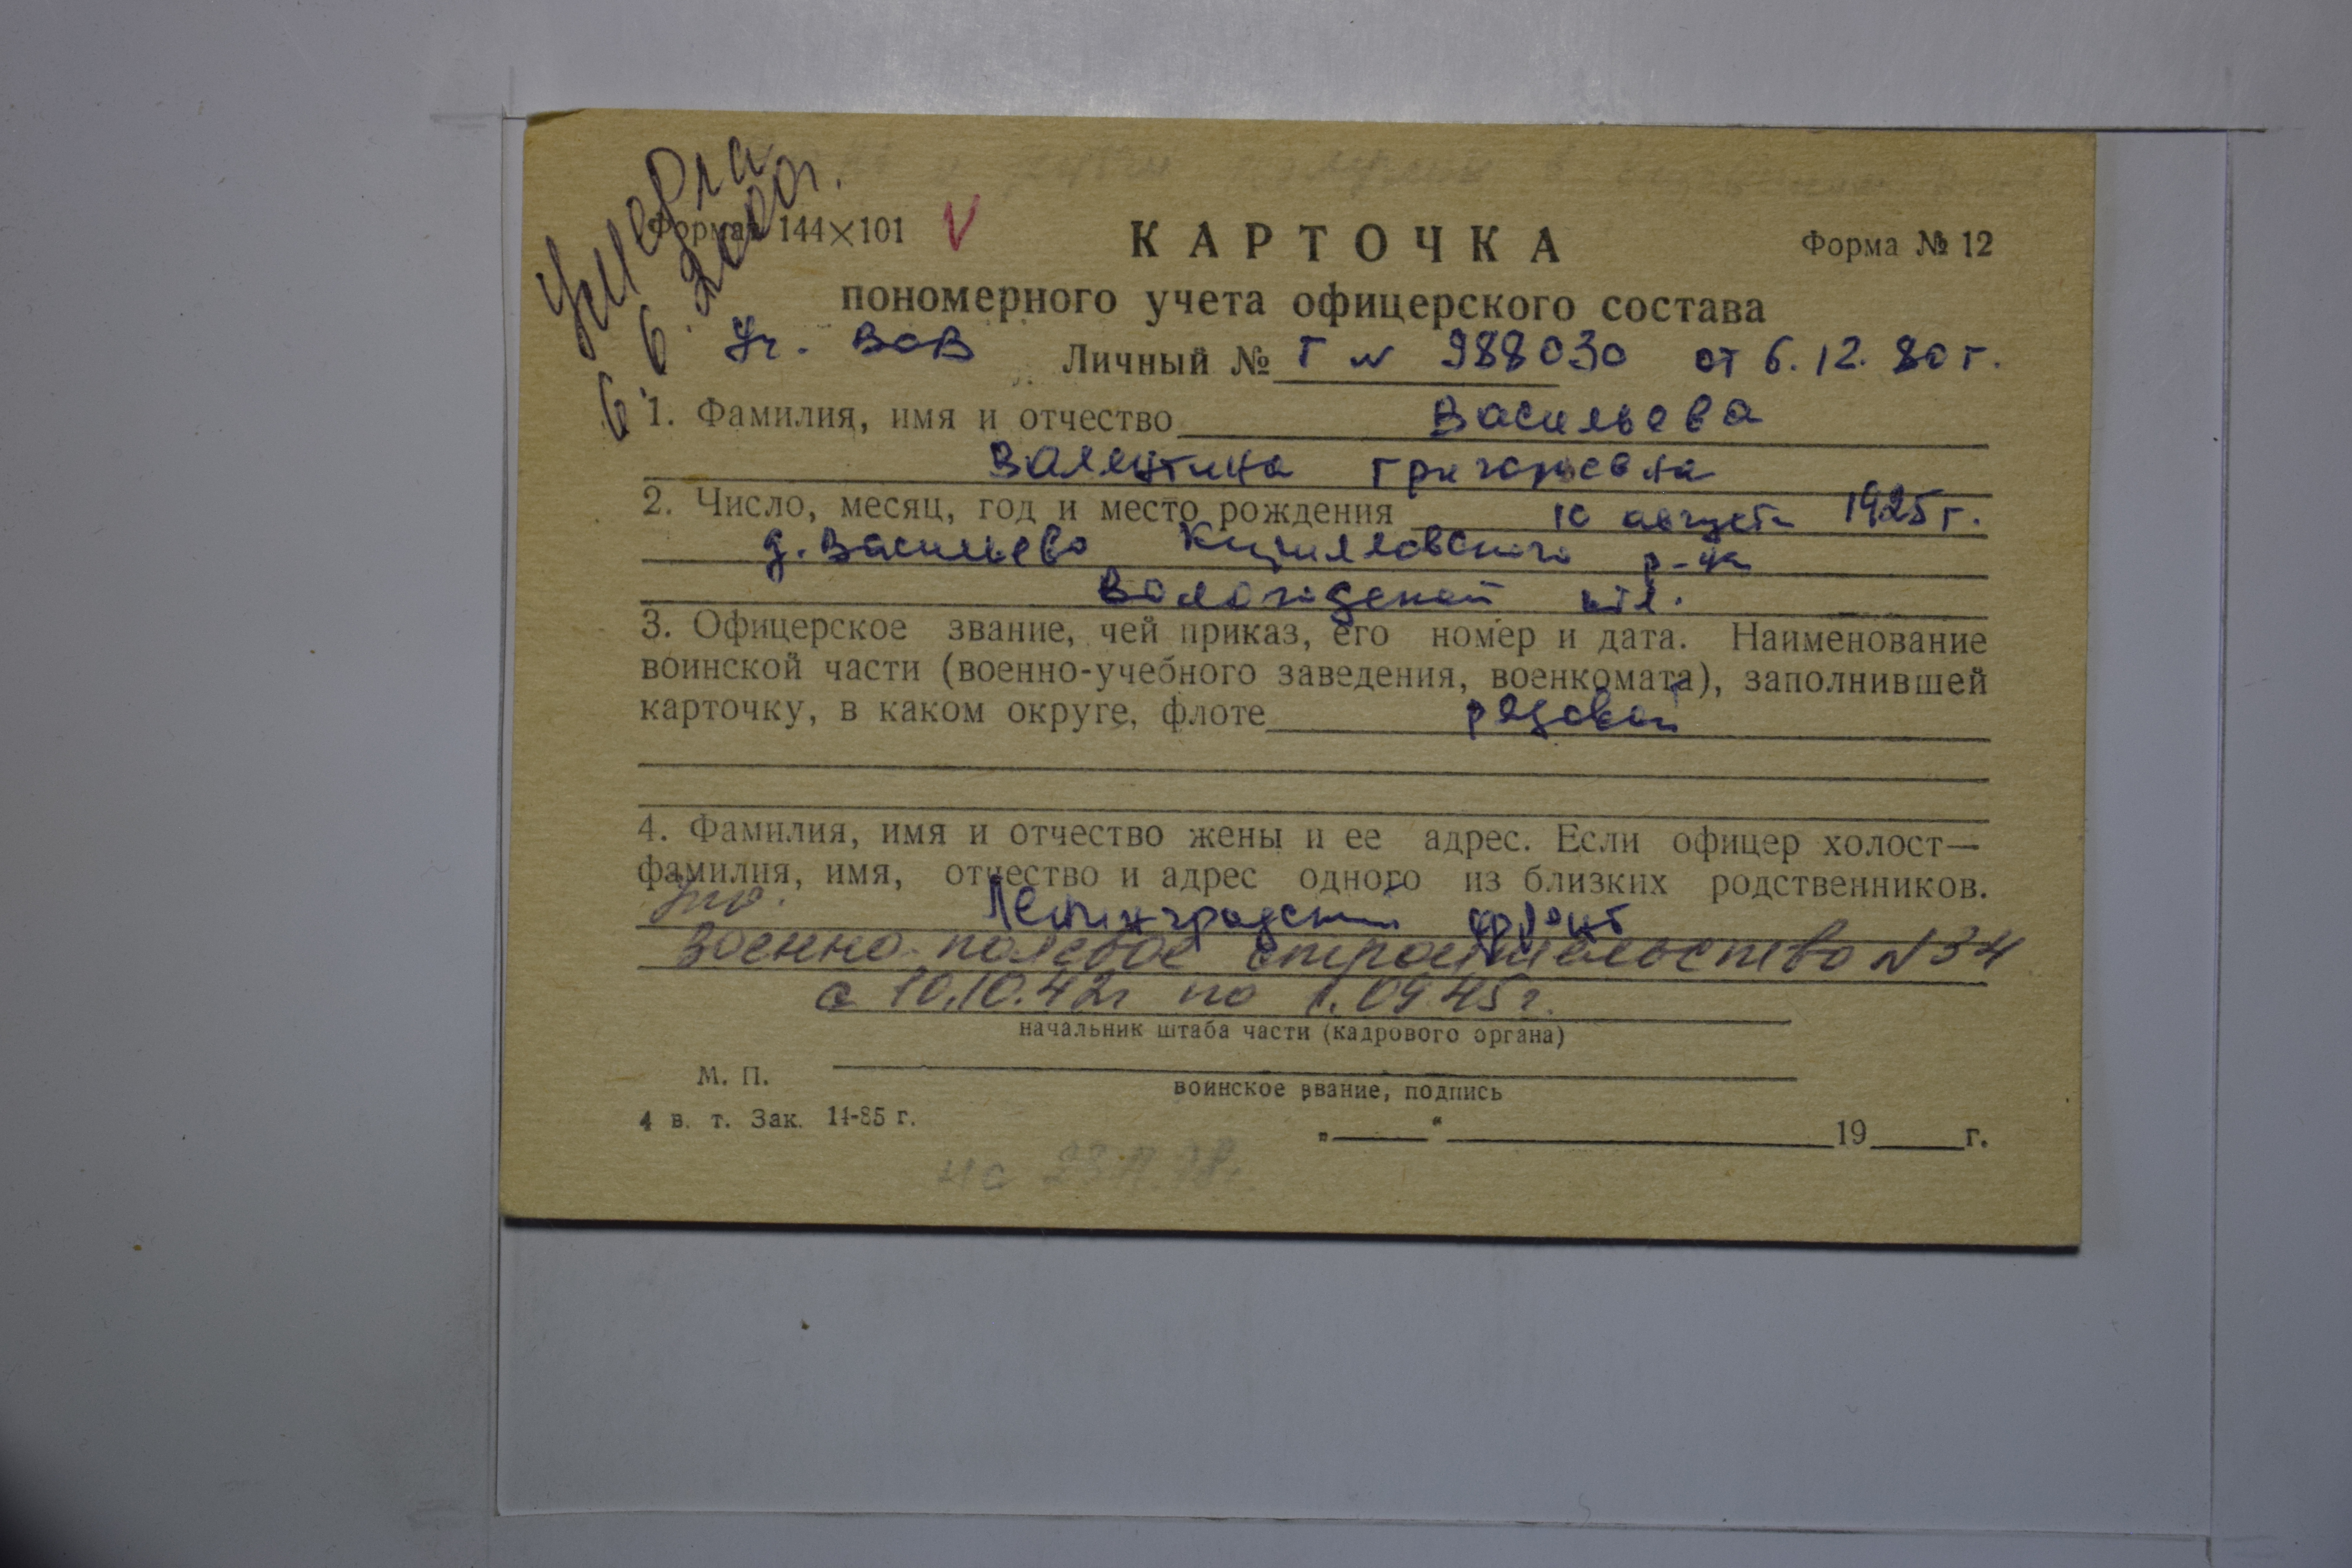 Умерла
6.6.2000г.
Формат 144×101 V
КАРТОЧКА
Форма № 12
пономерного учета офицерского состава
Уч. ВОВ
Личный № Г № 988030 от 6.12.80 г.
1. Фамилия, имя и отчество Васильева
Валентина Григорьевна
2. Число, месяц, год и место рождения 10 августа 1925 г.
д. Васильево Кирилловского р-на
Вологодской обл.
3. Офицерское звание, чей приказ, его номер и дата. Наименование
воинской части (военно-учебного заведения, военкомата), заполнившей
карточку, в каком округе, флоте рядовой
4. Фамилия, имя и отчество жены и ее адрес. Если офицер холост—
фамилия, имя, отчество и адрес одного из близких родственников.
Ленинградский фронт
Военно-полевое строительство №34
с 10.10.42г по 1.09.45г.
начальник штаба части (кадрового органа)
М. П.
воинское звание, подпись
4 в. т. Зак. 14-85 г.
„ “ 19 г.